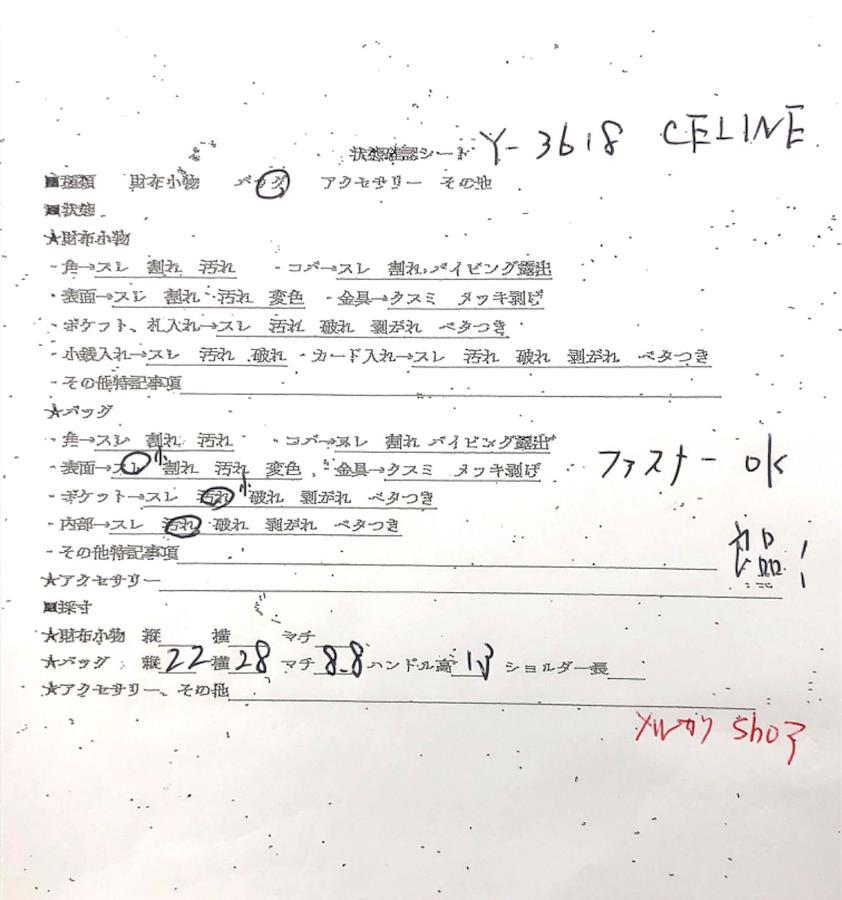 状態確認シート Y-3618 CELINE
■種類 財布小物 バッグ アクセサリー その他
■状態
★財布小物
・角→スレ 割れ 汚れ ・コバ→スレ 割れ パイピング露出
・表面→スレ 割れ 汚れ 変色 ・金具→クスミ メッキ剥げ
・ポケット、札入れ→スレ 汚れ 破れ 剥がれ ベタつき
・小銭入れ→スレ 汚れ 破れ ・カード入れ→スレ 汚れ 破れ 剥がれ ベタつき
・その他特記事項
★バッグ
・角→スレ 割れ 汚れ ・コバ→スレ 割れ パイピング露出
・表面→スレ 小 割れ 汚れ 変色 ・金具→クスミ メッキ剥げ ファスナー ok
・ポケット→スレ 汚れ 小 破れ 剥がれ ベタつき
・内部→スレ 汚れ 破れ 剥がれ ベタつき
・その他特記事項
★アクセサリー
■採寸
★財布小物 縦 横 マチ
★バッグ 縦 22 横 28 マチ 8.8 ハンドル高 13 ショルダー長
★アクセサリー、その他